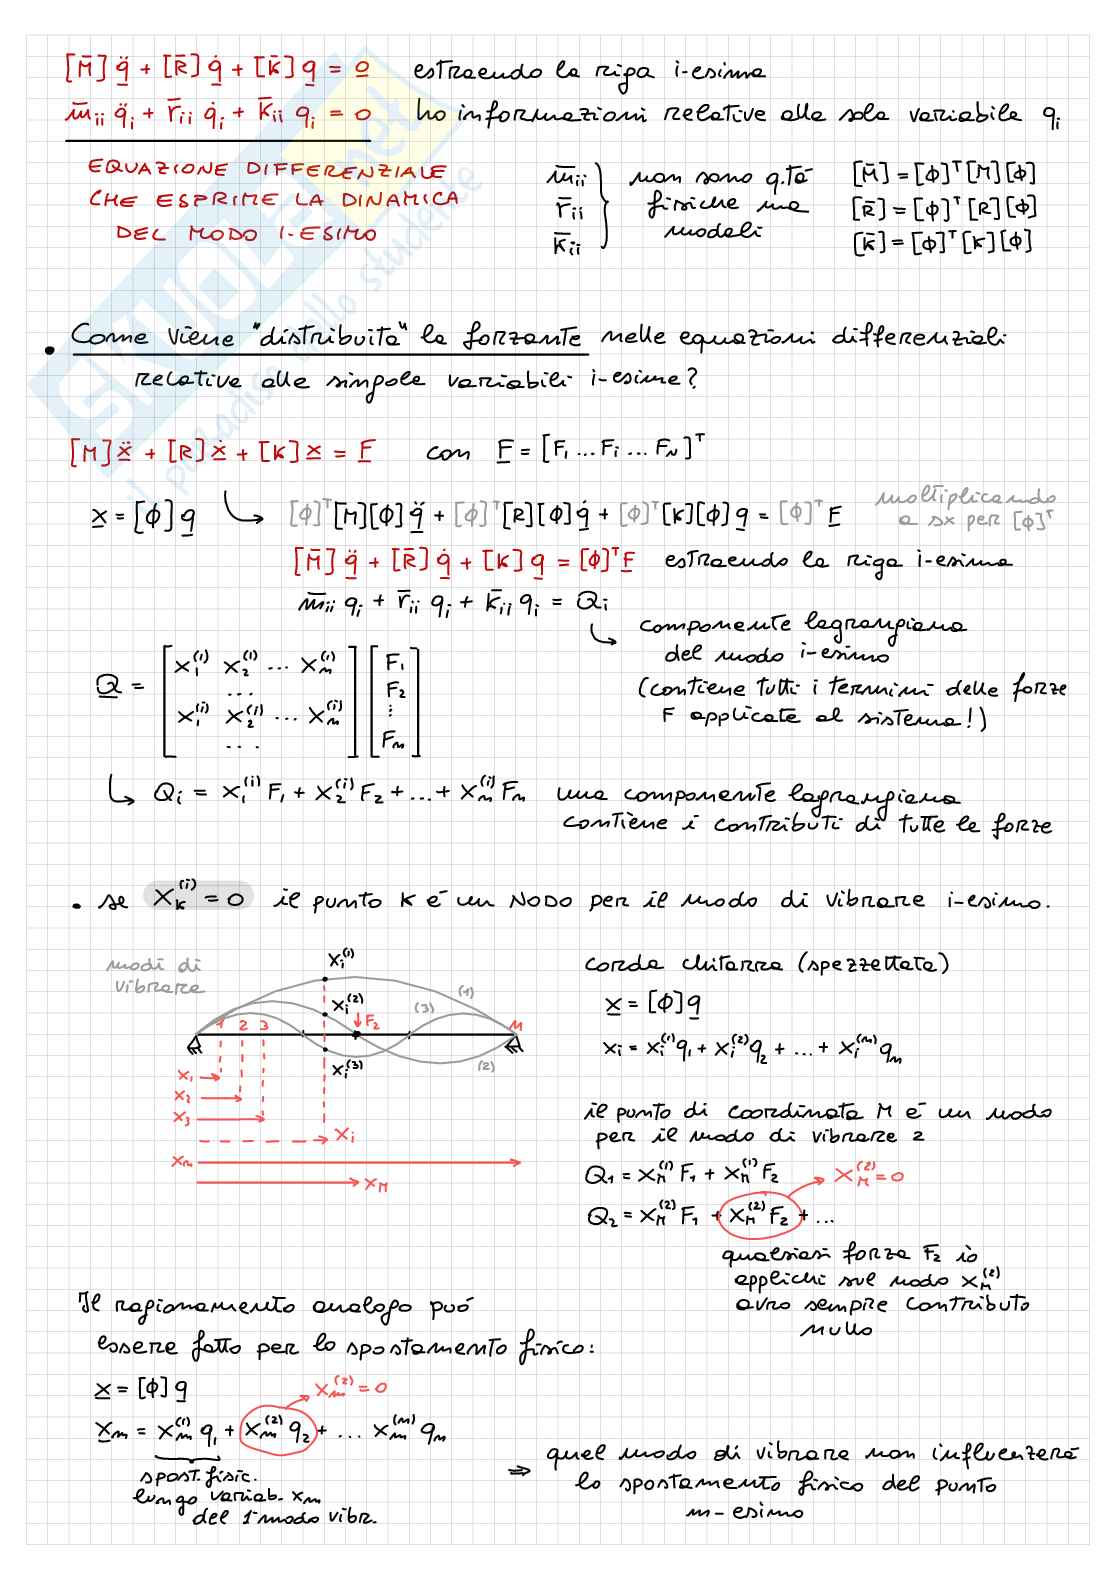 [M̄] q̈ + [R̄] q̇ + [K̄] q = 0 estraendo la riga i-esima
m̄ii q̈i + r̄ii q̇i + k̄ii qi = 0 ho informazioni relative alla sola variabile qi
EQUAZIONE DIFFERENZIALE
CHE ESPRIME LA DINAMICA
DEL MODO I-ESIMO
m̄ii
r̄ii
k̄ii
non sono q.tà
fisiche ma
modali
[M̄] = [ϕ]ᵀ[M][ϕ]
[R̄] = [ϕ]ᵀ[R][ϕ]
[K̄] = [ϕ]ᵀ[K][ϕ]
SKUOLA.net
il paradiso dello studente
• Come viene "distribuita" la forzante nelle equazioni differenziali
relative alle singole variabili i-esime?
[M]ẍ + [R]ẋ + [K]x = F con F = [F₁ ... Fi ... FN]ᵀ
x = [ϕ] q [ϕ]ᵀ[M][ϕ] q̈ + [ϕ]ᵀ[R][ϕ] q̇ + [ϕ]ᵀ[K][ϕ] q = [ϕ]ᵀ F
moltiplicando
a sx per [ϕ]ᵀ
[M̄] q̈ + [R̄] q̇ + [K̄] q = [ϕ]ᵀF estraendo la riga i-esima
m̄ii qi + r̄ii qi + k̄ii qi = Qi
componente lagrangiana
del modo i-esimo
(contiene tutti i termini delle forze
F applicate al sistema!)
Q = [x₁⁽¹⁾ x₂⁽¹⁾ ... xₙ⁽¹⁾ ... x₁⁽ⁱ⁾ x₂⁽ⁱ⁾ ... xₙ⁽ⁱ⁾ ...] [F₁ F₂ ⋮ Fₙ]
Qi = x₁⁽ⁱ⁾F₁ + x₂⁽ⁱ⁾F₂ + ... + xₙ⁽ⁱ⁾Fₙ una componente lagrangiana
contiene i contributi di tutte le forze
• se xK⁽ⁱ⁾ = 0 il punto K è un NODO per il modo di vibrare i-esimo.
modi di
vibrare
xi⁽¹⁾
xi⁽²⁾
xi⁽³⁾
(1)
(3)
(2)
F₂
1 2 3
M
x₁
x₂
x₃
xi
xₙ
xM
corda chitarra (spezzettata)
x = [ϕ] q
xi = xi⁽¹⁾q₁ + xi⁽²⁾q₂ + ... + xi⁽ⁿ⁾qₙ
il punto di coordinata M è un nodo
per il modo di vibrare 2
Q₁ = xM⁽¹⁾F₁ + xM⁽¹⁾F₂
xM⁽²⁾ = 0
Q₂ = xM⁽²⁾F₁ + xM⁽²⁾F₂ + ...
qualsiasi forza F₂ io
applichi sul nodo xM⁽²⁾
avrò sempre contributo
nullo
Il ragionamento analogo può
essere fatto per lo spostamento fisico:
x = [ϕ] q
xm⁽²⁾ = 0
xm = xm⁽¹⁾ q₁ + xm⁽²⁾ q₂ + ... xm⁽ⁿ⁾ qₙ
spost. fisic.
lungo variab. xm
del 1° modo vibr.
⇒ quel modo di vibrare non influenzerà
lo spostamento fisico del punto
m-esimo